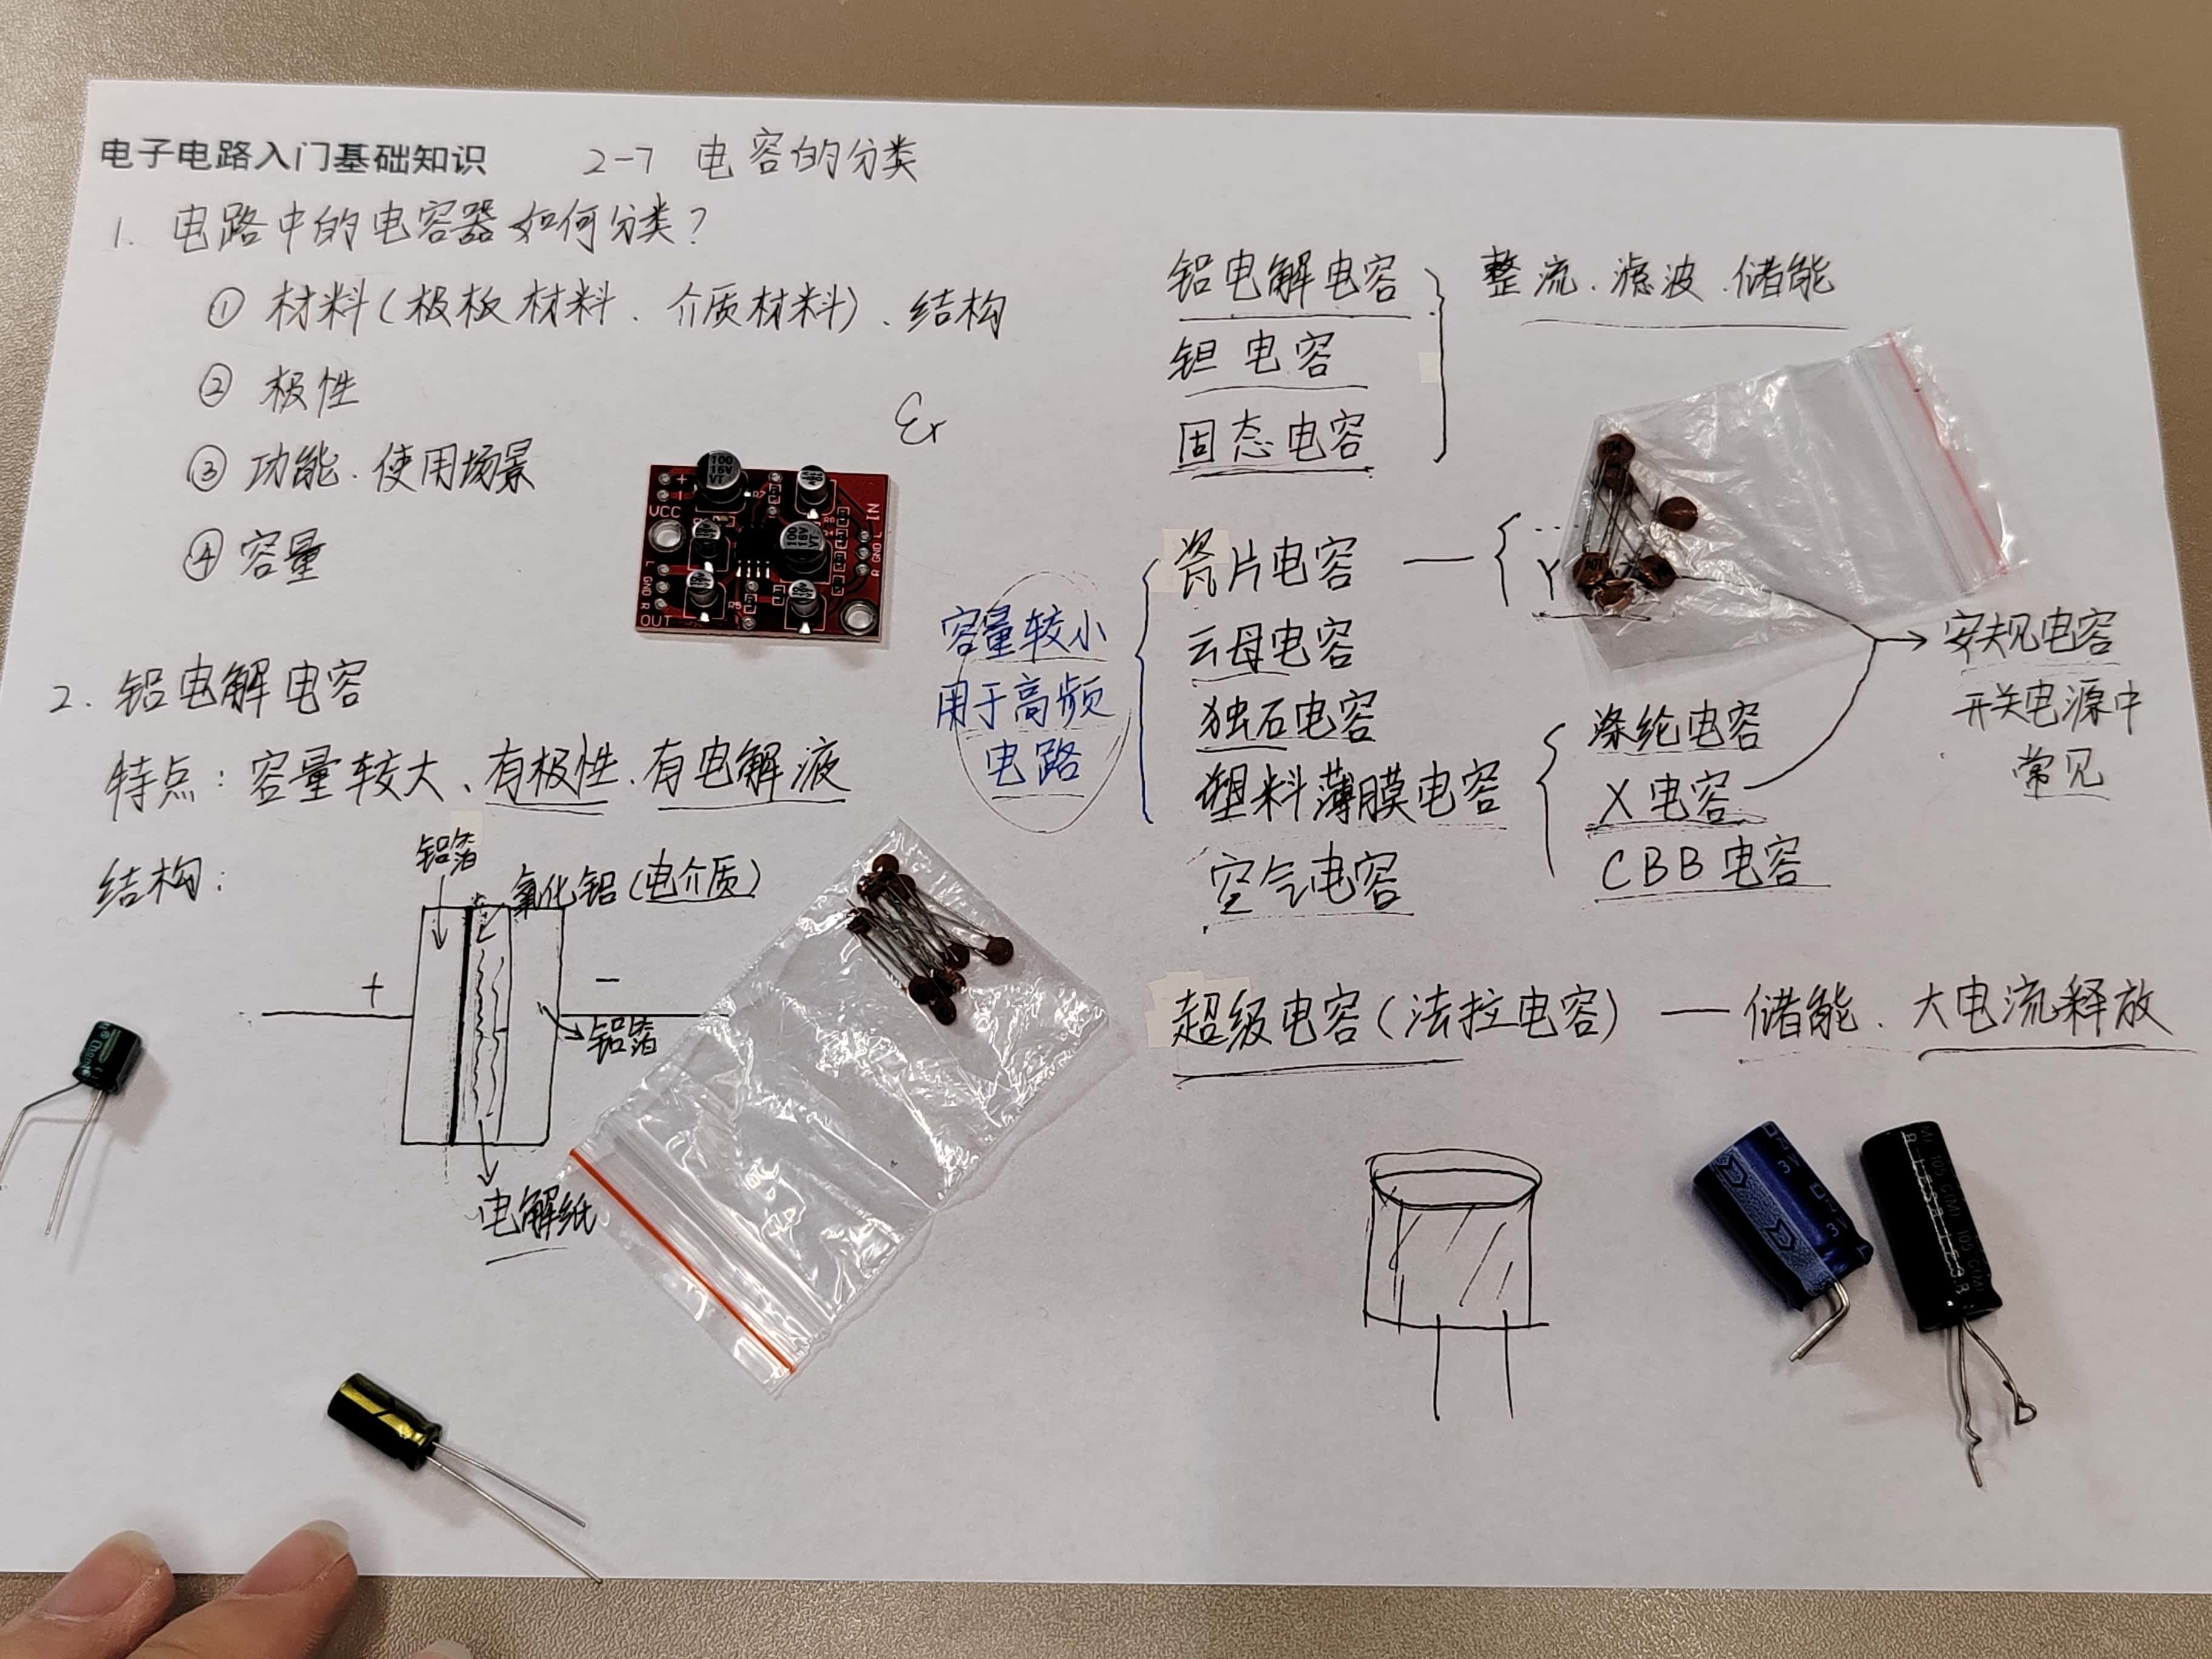 电子电路入门基础知识 2-7 电容的分类
1. 电路中的电容器如何分类?
① 材料(极板材料、介质材料)、结构
② 极性
③ 功能、使用场景
④ 容量
εr
100
16V
VT
100
16V
VT
+
-
VCC
R7
R5
IN
L
GND
R
L
GND
R
OUT
2. 铝电解电容
特点: 容量较大、有极性、有电解液
结构:
铝箔
氧化铝(电介质)
+
-
铝箔
电解纸
铝电解电容
钽电容
固态电容
整流、滤波、储能
容量较小
用于高频
电路
瓷片电容 — Y
云母电容
独石电容
塑料薄膜电容
空气电容
涤纶电容
X电容
CBB电容
安规电容
开关电源中
常见
超级电容(法拉电容) — 储能、大电流释放
104
101